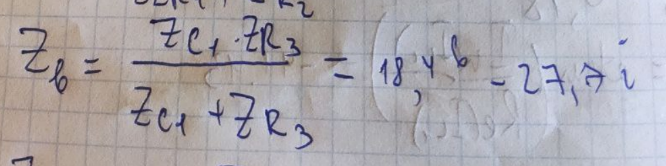 Z_b = \frac{Z_{C1} \cdot Z_{R3}}{Z_{C1} + Z_{R3}} = 18,46 - 27,7i